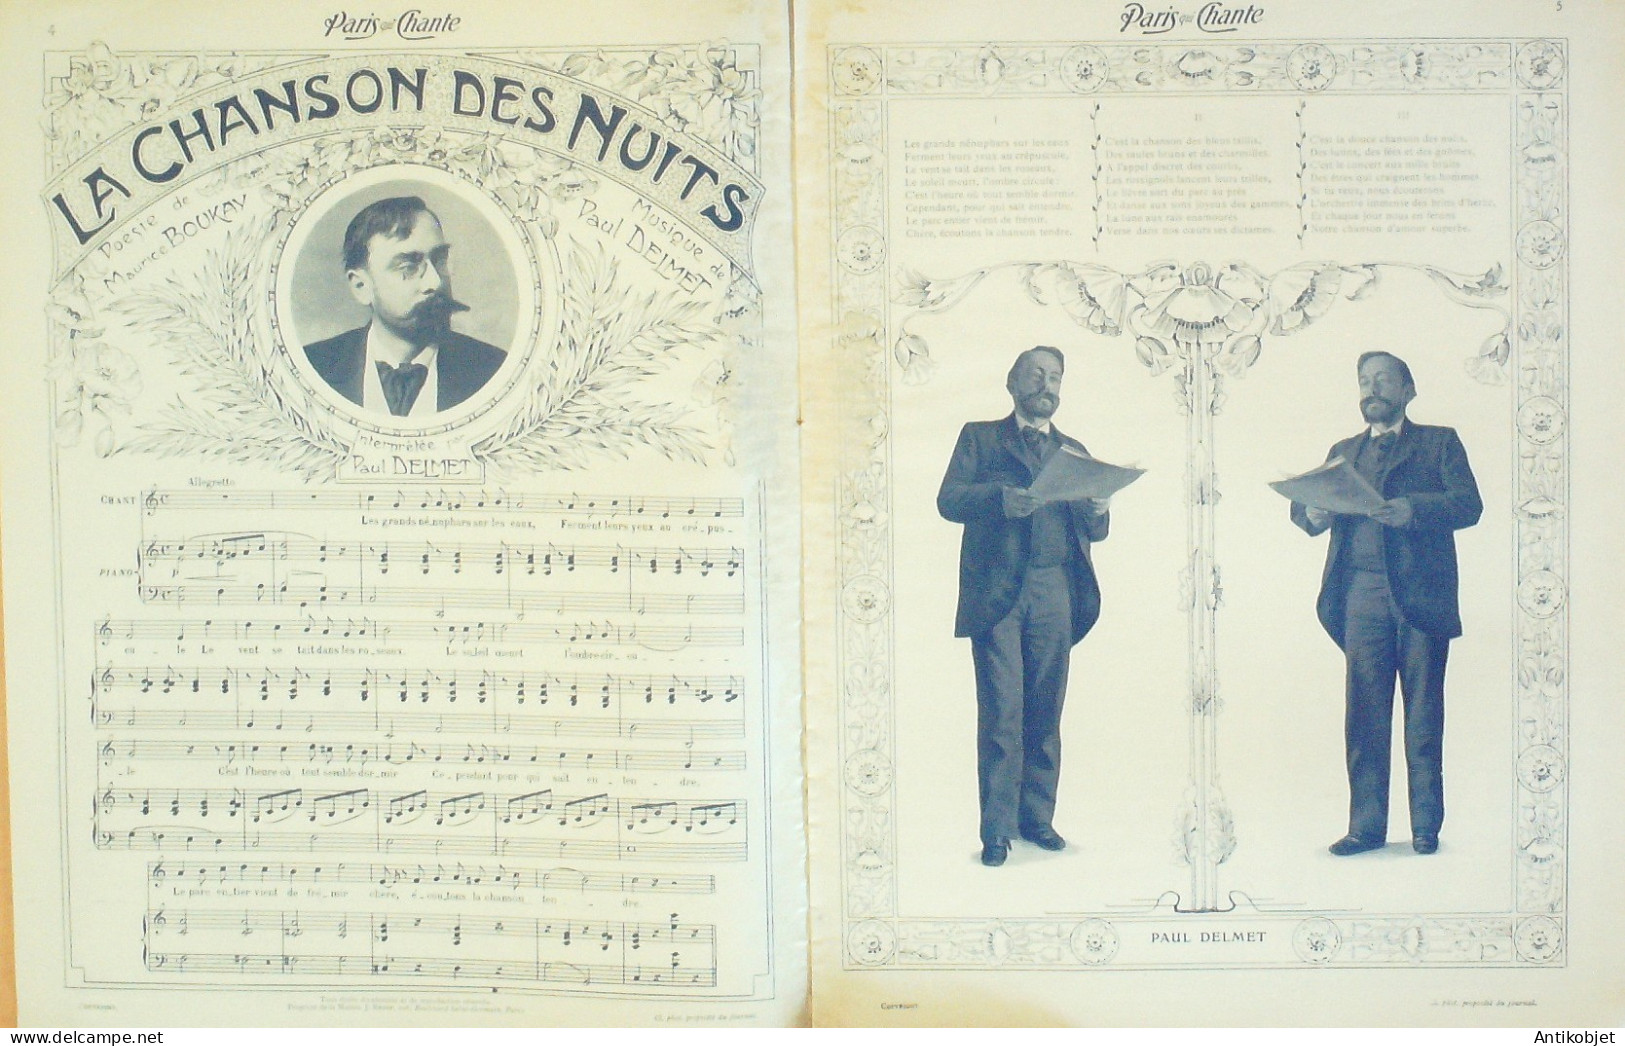 4
Paris qui Chante
LA CHANSON DES NUITS
Poésie de
Maurice BOUKAY
Musique de
Paul DELMET
Interprétée par
Paul DELMET
Allegretto
CHANT
Les grands né_nuphars sur les eaux, Ferment leurs yeux au cré_pus_
PIANO
p
cu_ le Le vent se tait dans les ro_seaux. Le so_leil meurt l'ombre cir_cu_
_le C'est l'heure où tout semble dor_mir Ce_pendant pour qui sait en_ten_dre.
Le parc en_tier vient de fré_mir chère, é_cou_tons la chanson ten_dre.
Paris qui Chante
5
I
Les grands nénuphars sur les eaux
Ferment leurs yeux au crépuscule,
Le vent se tait dans les roseaux,
Le soleil meurt, l'ombre circule:
C'est l'heure où tout semble dormir.
Cependant, pour qui sait entendre,
Le parc entier vient de frémir.
Chère, écoutons la chanson tendre.
II
C'est la chanson des bleus taillis,
Des saules bruns et des charmilles.
A l'appel discret des
Les rossignols lancent leurs trilles,
Le lièvre sort du parc au près
Et danse aux sons joyeux des gammes,
La lune aux rais enamourés
Verse dans nos cœurs ses dictames.
III
C'est la douce chanson des nuits,
Des lutins, des fées et des gnômes,
C'est le concert aux mille bruits
Des êtres qui craignent les hommes
Si tu veux, nous écouterons
L'orchestre immense des brins d'herbe,
Et chaque jour nous en ferons
Notre chanson d'amour superbe.
PAUL DELMET
Cl. phot. propriété du journal.
phot. propriété du journal.
Antikobjet